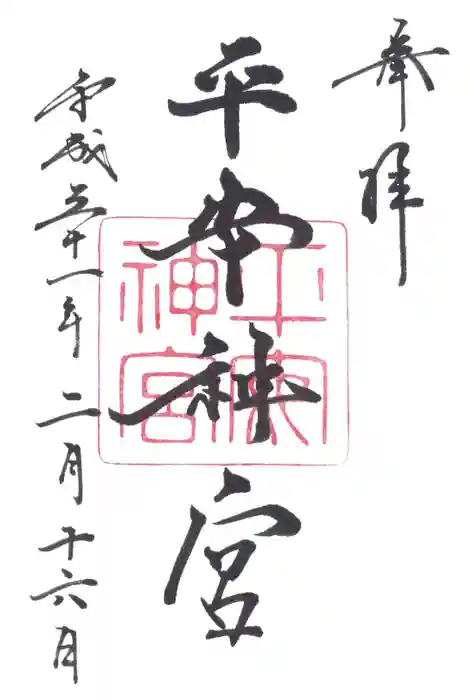 奉拝
平安神宮
平安神宮
平成三十一年二月十六月